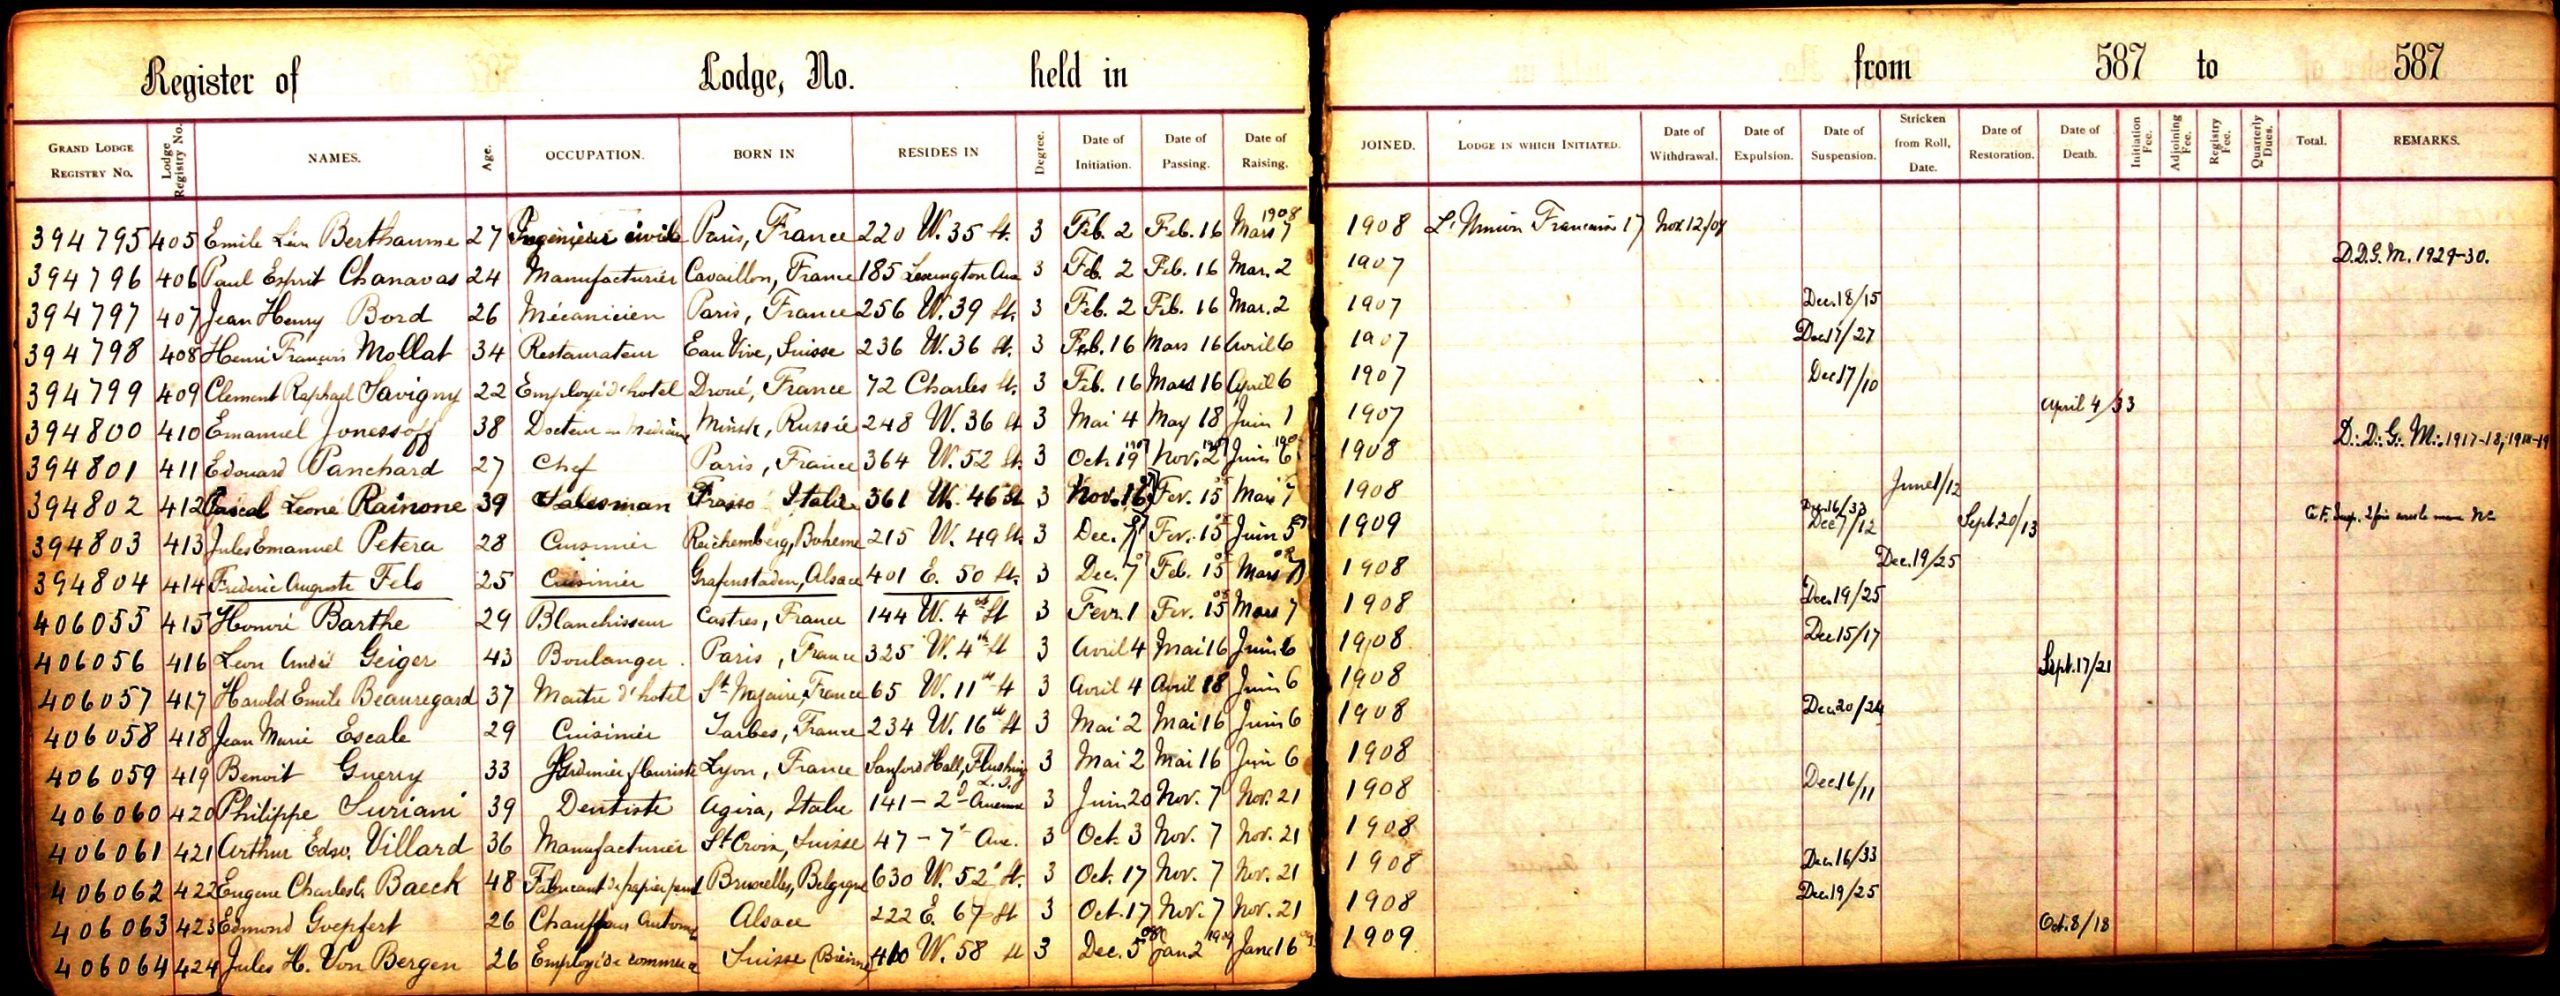 Register of Lodge, No. held in from 587 to 587
GRAND LODGE REGISTRY NO. Lodge Registry No. NAMES. Age. OCCUPATION. BORN IN RESIDES IN Degree. Date of Initiation. Date of Passing. Date of Raising. JOINED. LODGE IN WHICH INITIATED. Date of Withdrawal. Date of Expulsion. Date of Suspension. Stricken from Roll, Date. Date of Restoration. Date of Death. Initiation Fee. Adjoining Fee. Registry Fee. Quarterly Dues. Total. REMARKS.
394795 405 Emile Léon Berthaume 27 Ingénieur civile Paris, France 220 W. 35 St. 3 Feb. 2 Feb. 16 Mars 7 1908 1908 L'Union Française 17 Nov. 12/08
394796 406 Paul Esprit Chanavas 24 Manufacturier Cavaillon, France 185 Lexington Ave 3 Feb. 2 Feb. 16 Mar. 2 1907 D.D.G.M. 1929-30.
394797 407 Jean Henry Bord 26 Mécanicien Paris, France 256 W. 39 St. 3 Feb. 2 Feb. 16 Mar. 2 1907 Dec. 18/15
394798 408 Henri François Mollat 34 Restaurateur Eau Vive, Suisse 236 W. 36 St. 3 Feb. 16 Mars 16 Avril 6 1907 Dec 17/27
394799 409 Clement Raphael Savigny 22 Employé d'hotel Droué, France 72 Charles St. 3 Feb. 16 Mars 16 April 6 1907 Dec 17/10
394800 410 Emanuel Jonessoff 38 Docteur en Medicine Minsk, Russie 248 W. 36 St 3 Mai 4 May 18 Juin 1 1907 April 4/33
394801 411 Edouard Panchard 27 Chef Paris, France 364 W. 52 St. 3 Oct. 19 1907 Nov. 2 1907 Juin 6 1908 D.: D.: G.: M.: 1917-18, 1918-19
394802 412 Pascal Leone Rainone 39 Salesman Frasso Italie 361 W. 46 St 3 Nov. 16 07 Fev. 15 Mars 7 1908 June 1/12
394803 413 Jules Emanuel Petera 28 Cuisinier Reichemberg, Boheme 215 W. 49 St. 3 Dec. 7 Fev. 15 Juin 5 1909 Dec. 16/33 Dec 7/12 Sept. 20/13
394804 414 Frederic Auguste Fels 25 Cuisinier Grafenstaden, Alsace 401 E. 50 St. 3 Dec. 7 Feb. 15 Mars 7 1908 Dec. 19/25
406055 415 Honoré Barthe 29 Blanchisseur Castres, France 144 W. 4th St 3 Fevr. 1 Fev. 15 Mars 7 1908 Dec. 19/25
406056 416 Leon André Geiger 43 Boulanger Paris, France 325 W. 4th St 3 Avril 4 Mai 16 Juin 6 1908 Dec 15/17
406057 417 Harold Emile Beauregard 37 Maitre d'hotel St. Nazaire, France 65 W. 11th St 3 Avril 4 Avril 18 Juin 6 1908 Sept. 17/21
406058 418 Jean Marie Escale 29 Cuisinier Tarbes, France 234 W. 16th St 3 Mai 2 Mai 16 Juin 6 1908 Dec. 20/24
406059 419 Benoit Guerry 33 Jardinier fleuriste Lyon, France Sanford Hall, Flushing L. I. 3 Mai 2 Mai 16 Juin 6 1908
406060 420 Philippe Suriani 39 Dentiste Agira, Italie 141 - 2d Avenue 3 Juin 20 Nov. 7 Nov. 21 1908 Dec. 16/11
406061 421 Arthur Edw. Villard 36 Manufacturier St Croix, Suisse 47 - 7e Ave. 3 Oct. 3 Nov. 7 Nov. 21 1908
406062 422 Eugene Charles G. Baeck 48 Fabricant de papier peint Bruxelles, Belgique 630 W. 52 St. 3 Oct. 17 Nov. 7 Nov. 21 1908 Dec. 16/33
406063 423 Edmond Goepfert 26 Chauffeur Automo Alsace 222 E. 67 St 3 Oct. 17 Nov. 7 Nov. 21 1908 Dec. 19/25
406064 424 Jules H. Von Bergen 26 Employé de commerce Suisse (Brienne) 410 W. 58 St 3 Dec. 5 08 Jan 2 1909 Jan 16 1909 Oct. 8/18